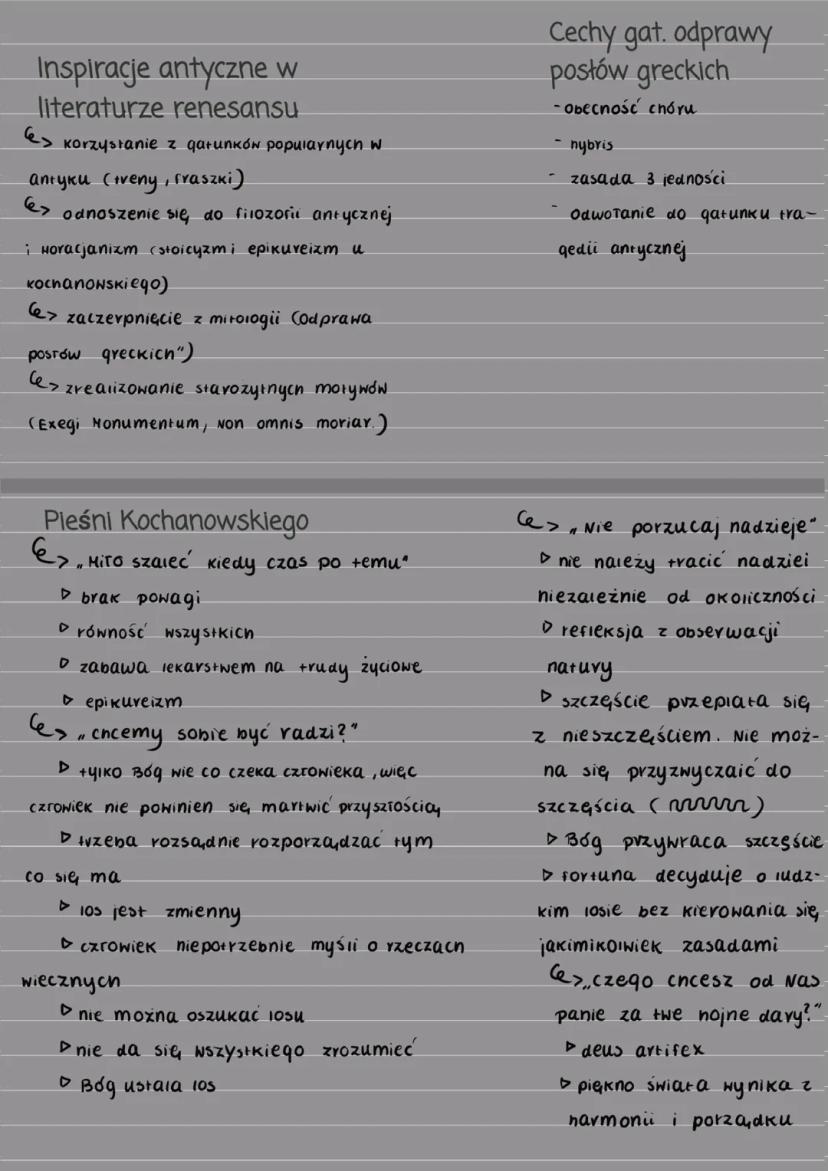 Inspiracje antyczne w
literaturze renesansu
↪ korzystanie z gatunków popularnych w
antyku (treny, fraszki)
↪ odnoszenie się do filozofii antycznej
i Horacjanizm (stoicyzm i epikureizm u
Kochanowskiego)
↪ zaczerpnięcie z mitologii (Odprawa
posłów greckich")
↪ zrealizowanie starożytnych motywów
(Exegi Monumentum, Non omnis moriar.)
Cechy gat. odprawy
posłów greckich
- obecność chóru
- hybris
- zasada 3 jedności
- odwołanie do gatunku tra-
gedii antycznej
Pieśni Kochanowskiego
↪ „Miło szaleć kiedy czas po temu"
▷ brak powagi
▷ równość wszystkich
▷ zabawa lekarstwem na trudy życiowe
▷ epikureizm
↪ „chcemy sobie być radzi?"
▷ tylko Bóg wie co czeka człowieka, więc
człowiek nie powinien się martwić przyszłością
▷ trzeba rozsądnie rozporządzać tym
co się ma
▷ los jest zmienny
▷ człowiek niepotrzebnie myśli o rzeczach
wiecznych
▷ nie można oszukać losu
▷ nie da się wszystkiego zrozumieć
▷ Bóg ustala los
↪ „Nie porzucaj nadzieje"
▷ nie należy tracić nadziei
niezależnie od okoliczności
▷ refleksja z obserwacji
natury
▷ szczęście przeplata się
z nieszczęściem. Nie moż-
na się przyzwyczaić do
szczęścia ( )
▷ Bóg przywraca szczęście
▷ fortuna decyduje o ludz-
kim losie bez kierowania się
jakimikolwiek zasadami
↪ „Czego chcesz od Nas
panie za twe hojne dary?"
▷ deus artifex
▷ piękno świata wynika z
harmonii i porządku